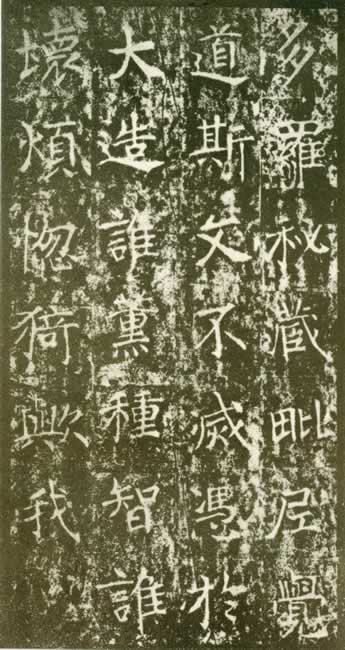 多羅秘藏毗尼覺
道斯文不滅憑於
大造誰薰種智誰
壞煩惱猗歟我